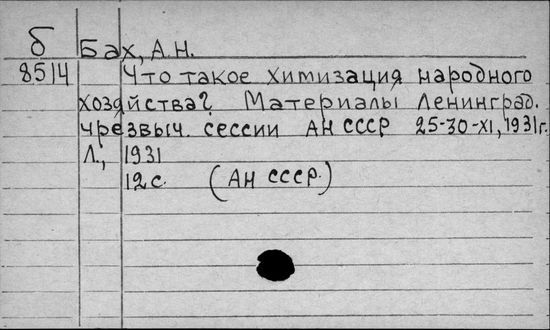 б Бах, А.Н.
8514 Что такое химизация народного
хозяйства? Материалы Ленинград.
чрезвыч. сессии АН СССР 25-30-XI, 1931г.
Л., 1931
12 с. (АН СССР.)